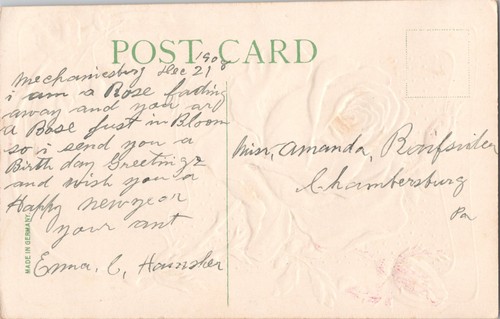 POST CARD
Mechanicsburg Dec 21 1908
i am a Rose fading
away and you are
a Rose Just in Bloom
so i send you a
Birth day Greetings
and wish you a
Happy new year
your ant
Emma, C,
Miss, Amanda,
Chambersburg
Pa
MADE IN GERMANY